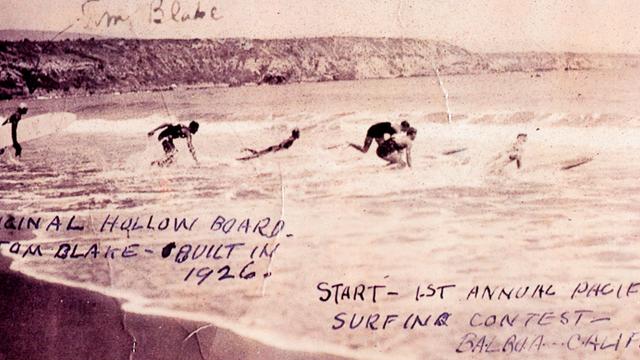 Tom Blake
IGINAL HOLLOW BOARD.
TOM BLAKE - BUILT IN
1926.
START - 1ST ANNUAL PACIF
SURFING CONTEST -
BALBOA - CALIF